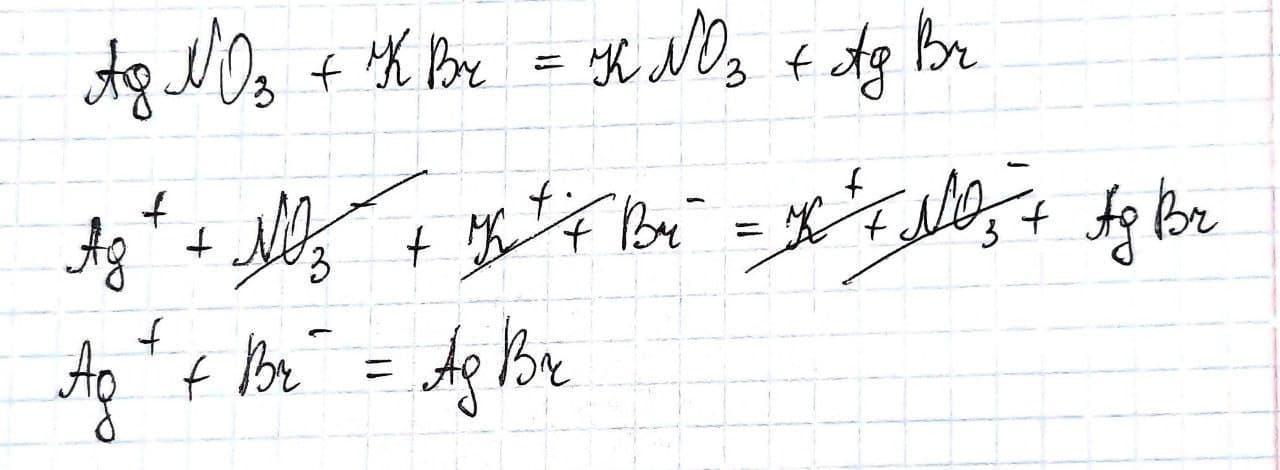 AgNO₃ + KBr = KNO₃ + AgBr
Ag⁺ + NO₃⁻ + K⁺ + Br⁻ = K⁺ + NO₃⁻ + AgBr
Ag⁺ + Br⁻ = AgBr